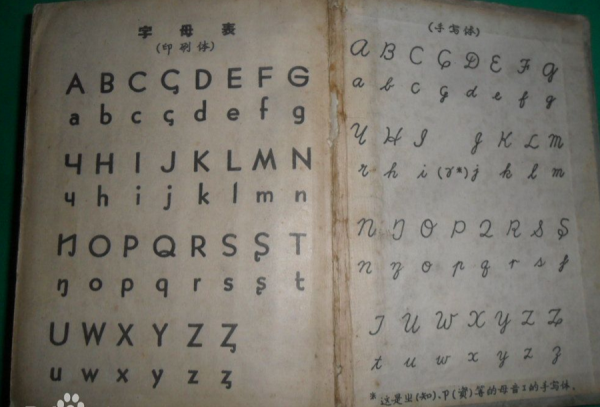 字母表
(印刷体)
A B C Ç D E F G
a b c ç d e f g
Ч H I J K L M N
ч h i j k l m n
Ŋ O P Q R S Ş T
ŋ o p q r s ş t
U W X Y Z Ⱬ
u w x y z ⱬ
(手写体)
A B C Ç D E F G
a b c ç d e f g
Ч H I J K L M
ч h i (ɤ*) j k l m
N Ŋ O P Q R S Ş
n ŋ o p q r s ş
T U W X Y Z Ⱬ
t u w x y z ⱬ
*这是ㄓ(知)、ㄗ(資)等的母音ɪ的手写体。